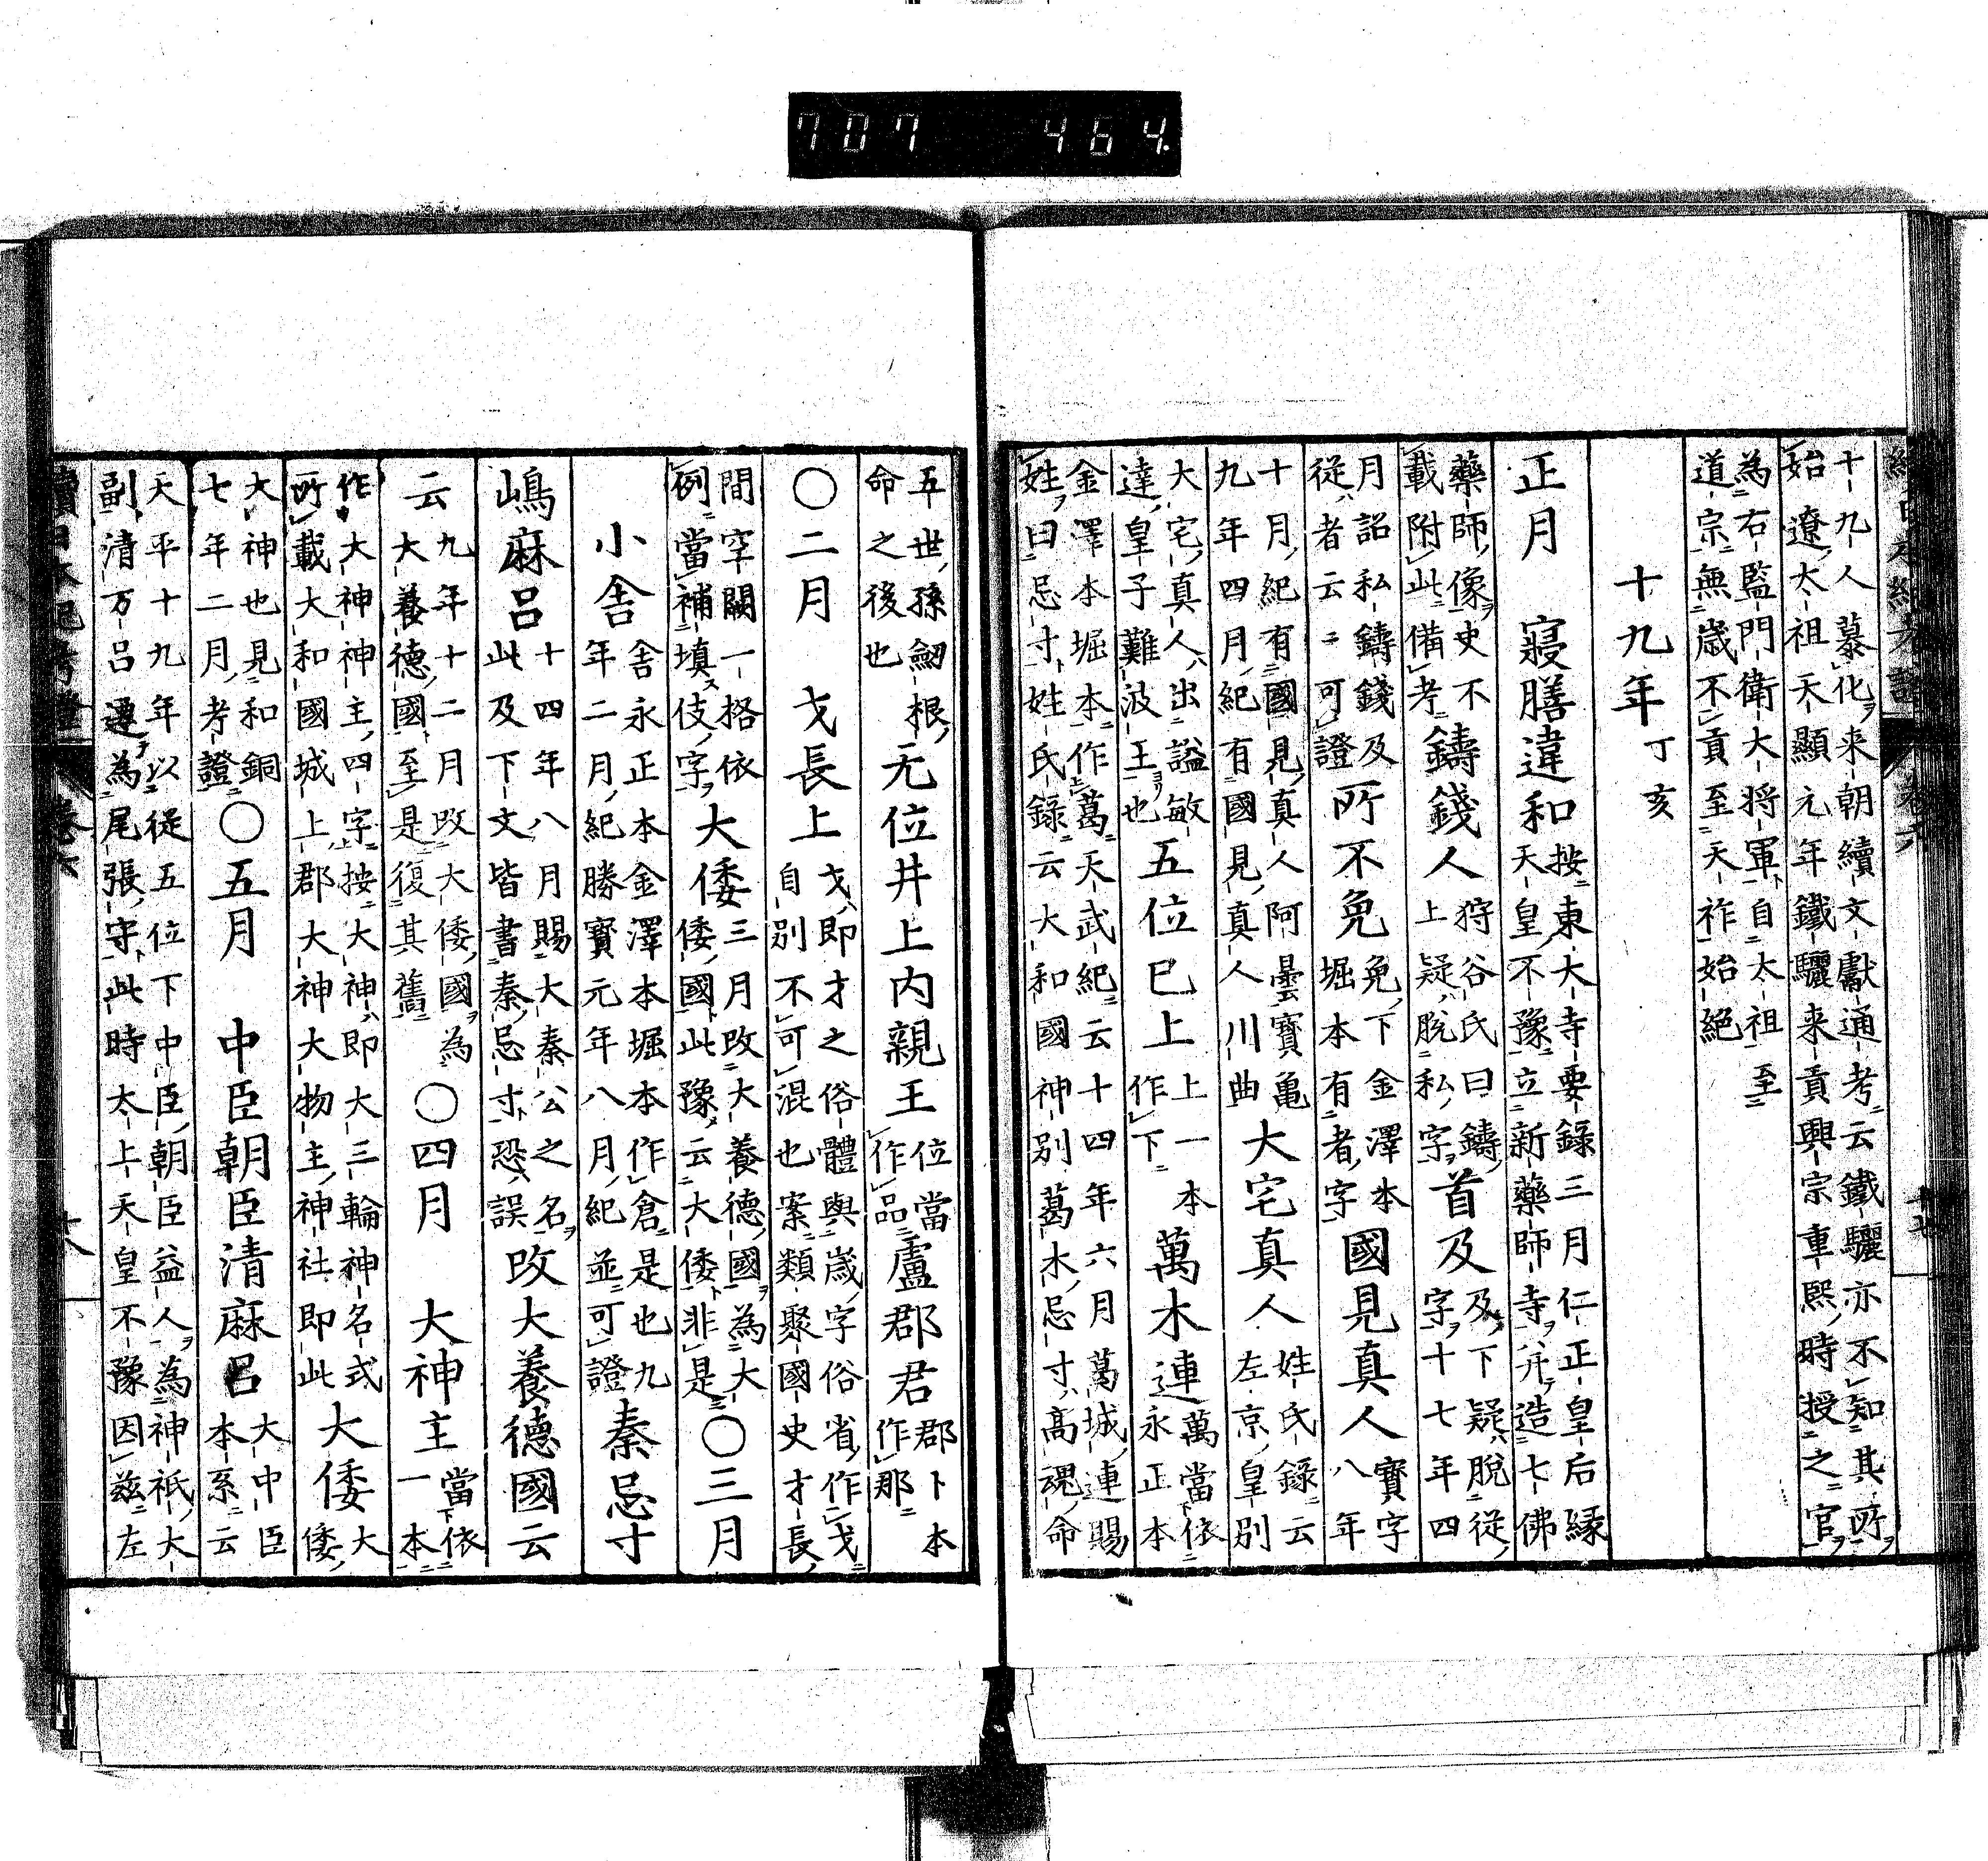 707 464.
十九人慕化来朝續文獻通考云鐵驪亦不知其所
始遼太祖天顯元年鐵驪来貢興宗重熙時授之官
為右監門衛大將軍自太祖至
道宗無歳不貢至天祚始絕
十九年丁亥
正月　寢膳違和按東大寺要錄三月仁正皇后縁
天皇不豫立新藥師寺并造七佛
藥師像史不
載附此備考鑄錢人狩谷氏曰鑄
上疑脫私字首及及下疑脫從
字十七年四
月詔私鑄錢及
從者云々可證所不免免下金澤本
堀本有者字國見真人寳字
八年
十月紀有國見真人阿曇寳亀
九年四月紀有國見真人川曲大宅真人姓氏錄云
左京皇別
大宅真人出謚敏
達皇子難波王也五位已上上一本
作下萬木連萬當依
永正本
金澤本堀本作葛天武紀云十四年六月葛城連賜
姓曰忌寸姓氏錄云大和國神別葛木忌寸高魂命
五世孫劔根
命之後也无位井上内親王位當
作品盧郡君郡卜本
作那
〇二月　戈長上戈即才之俗體與歳字俗省作戈
自別不可混也案類聚國史才長
間空闕一格依
例當補填伎字大倭三月改大養德國為大
倭國此豫云大倭非是〇三月
小舎舎永正本金澤本堀本作倉是也九
年二月紀勝寳元年八月紀並可證秦忌寸
嶋麻呂十四年八月賜大秦公之名
此及下文皆書秦忌寸恐誤改大養德國云
云九年十二月改大倭國為
大養德國至是復其舊〇四月　大神主當依
一本
作大神神主四字按大神即大三輪神名式
所載大和國城上郡大神大物主神社即此大倭大
倭
大神也見和銅
七年二月考證〇五月　中臣朝臣清麻呂大中臣
本系云
天平十九年以從五位下中臣朝臣益人為神祇大
副清万呂遷為尾張守此時太上天皇不豫因兹左